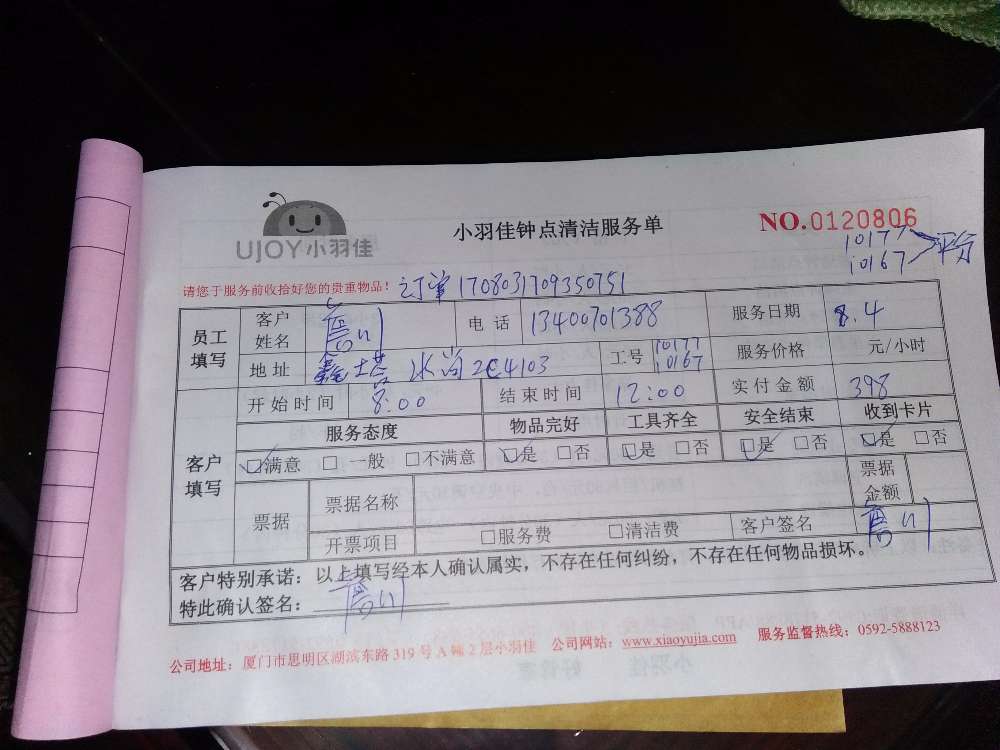 UJOY小羽佳
小羽佳钟点清洁服务单
NO.0120806
10177
10167 平分
请您于服务前收拾好您的贵重物品! 订单1708031709350751
员工填写 客户姓名 电话 13400701388 服务日期 8.4
地址 鑫塔水尚2C4103 工号 10177 10167 服务价格 元/小时
客户填写 开始时间 8:00 结束时间 12:00 实付金额 398
服务态度 物品完好 工具齐全 安全结束 收到卡片
☑满意 □一般 □不满意 ☑是 □否 ☑是 □否 ☑是 □否 ☑是 □否
票据 票据名称 票据金额
开票项目 □服务费 □清洁费 客户签名
客户特别承诺:以上填写经本人确认属实,不存在任何纠纷,不存在任何物品损坏。
特此确认签名:
公司地址:厦门市思明区湖滨东路319号A幢2层小羽佳 公司网站:www.xiaoyujia.com 服务监督热线:0592-5888123